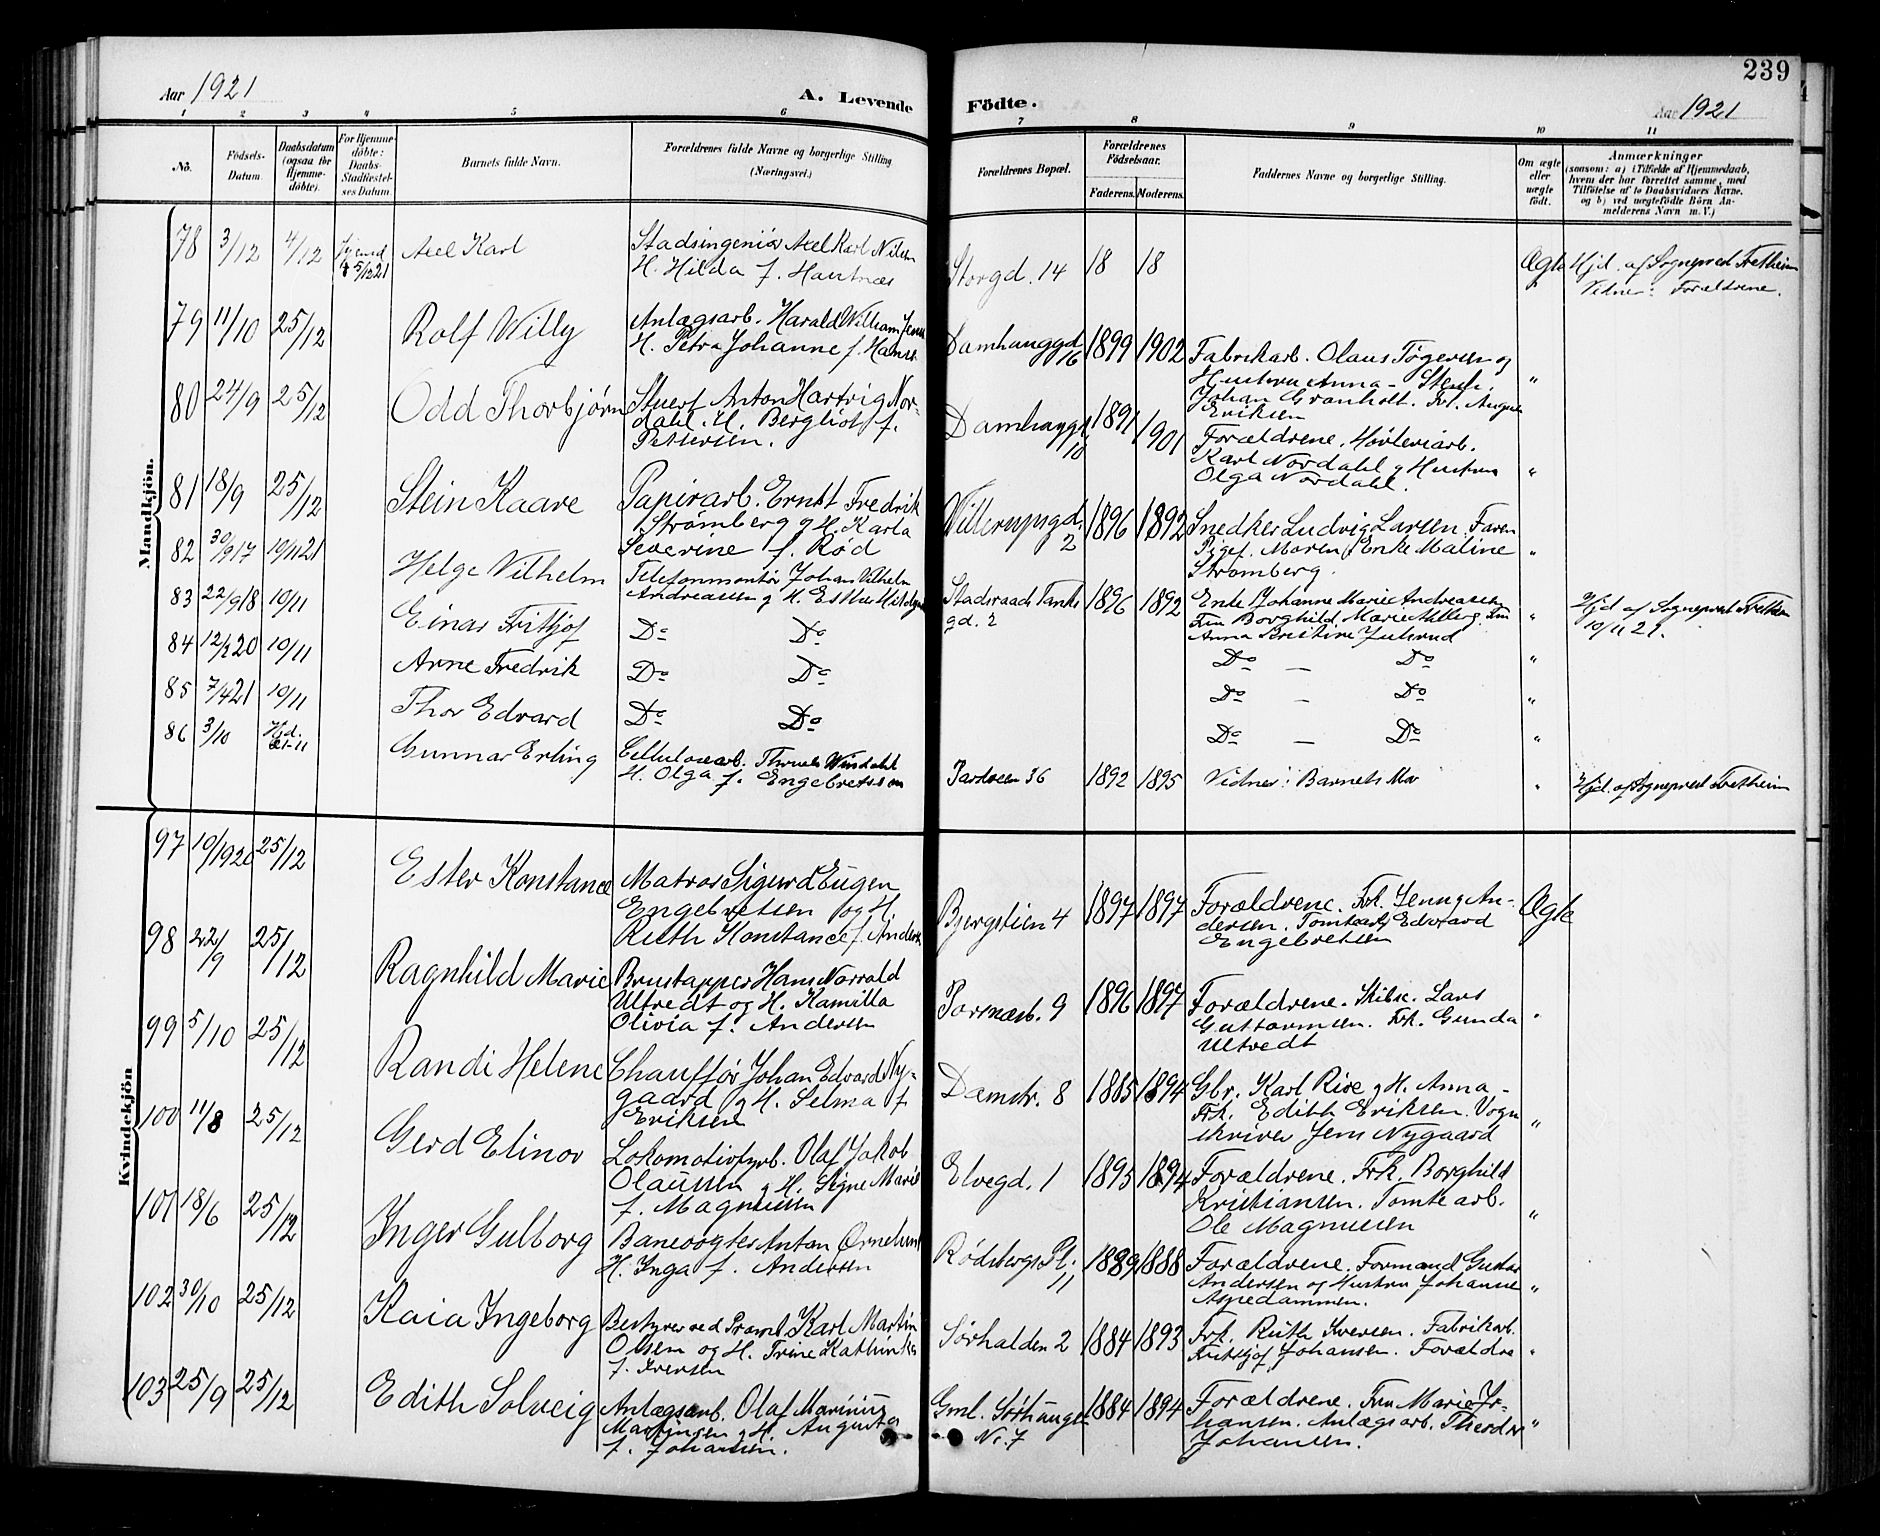 239
Aar 1921
A. Levende
Födte.
Aar 1921
1 2 3 4 5 6 7 8 9 10 11
No.
Födsels-
Datum.
Daabsdatum
(ogsaa for
Hjemme-
döbte).
For Hjemme-
döbte:
Daabs-
Stadfæstel-
ses Datum.
Barnets fulde Navn.
Forældrenes fulde Navne og borgerlige Stilling
(Næringsvei.)
Forældrenes Bopæl.
Forældrenes
Födselsaar.
Faderens. Moderens.
Faddernes Navne og borgerlige Stilling.
Om ægte
eller
uægte
födt.
Anmærkninger
(saasom: a) i Tilfælde af Hjemmedaab,
hvem der har forrettet samme, med
Tilföielse af to Daabsvidners Navne,
og b) ved uægtefödte Börn An-
melderens Navn m. V.)
Mandkjön.
78 3/12 4/12
Axel Karl
Stadsingeniør Axel Karl Nilsen
H. Hilda f.
Storgd. 14 18 18
Ægte
Hjd. af Sognepræst Fretheim
Vidner: Forældrene.
79 11/10 25/12
Rolf Willy
Anlægsarb. Harald William
H. Petra Johanne f.
Damhauggd. 16
1899 1902
Fabrikarb. Olaus Tøgersen og
Hustru Anna - Stenh.
Johan Granholt. Frk. August
Eriksen
"
80 24/9 25/12
Odd Thorbjørn
Stuert Anton Hartvig Nor-
dahl. H. Bergliot f.
Pettersen.
Damhauggd. 10
1891 1901
Forældrene. Høvleriarb.
Karl Nordahl og Hustru
Olga Nordahl.
"
81 18/9 25/12
Stein Kaare
Papirarb. Ernst Fredrik
Strømberg og H. Karla
Severine f. Rød
Willerupsgd. 2
1896 1892
Snedker Ludvig Larsen. Faren
Pigef. Maren, Enke Maline
Strømberg.
"
82 30/9 17 10/11 21
Helge Vilhelm
Telefonmontør Johan Vilhelm
Andreassen og H. Esther
Stadsraad Tanks
gd. 2
1896 1892
Enke Johanne Marie Andreassen
Fru Borghild Marie Ahlberg. Fru
Anna Kristine
"
Hjd. af Sognepræst Fretheim
10/11 21.
83 22/9 18 10/11
Einar Fritjof
Do Do
Do — Do
"
84 12/2 20 10/11
Arne Fredrik
Do Do
Do — Do
"
85 7/4 21 10/11
Thor Edvard
Do Do
Do — Do
"
86 3/10 Hjd. 21-11
Gunnar Erling
Cellulosearb. Thorvald
H. Olga f. Engebretsen
36 1892 1895
Vidner: Barnets Mor
"
Hjd. af Sognepræst Fretheim
Kvindekjön
97 10/1920 25/12
Ester Konstance
Matros Sigurd Eugen
Engebretsen og H.
Ruth Konstance f. Anders
Bjergstien 4
1897 1897
Forældrene. Frk. Jenny An-
dersen. Tomtearb. Edvard
Engebretsen
Ægte
98 22/9 25/12
Ragnhild Marie
Hans Norvald
Ultvedt og H. Kamilla
Olivia f. Andersen
Porsnæsb. 9
1896 1897
Forældrene. Skibsc. Lars
Guttormsen. Frk. Gunda
Ultvedt
"
99 5/10 25/12
Randi Helene
Chauffør Johan Edvard Ny-
gaard og H. Selma f.
Eriksen
Damstr. 8
1885 1894
Gbr. Karl Rise og H. Anna -
Frk. Edith Eriksen. Vogn
skriver Jens Nygaard
"
100 11/8 25/12
Gerd Elinor
Lokomotivfyrb. Olaf Jakob
Olaussen og H. Signe Marie
f. Magnussen
Elvegd. 1
1895 1894
Forældrene. Frk. Borghild
Kristiansen. Tomtearb.
Ole Magnussen
"
101 18/6 25/12
Inger Gulborg
Banevogter Anton Ørnelund
H. Inga f. Andersen
Rødsbergs Pl. 11
1889 1888
Forældrene. Formand Gustav
Andersen og Hustru Johanne
Aspedammen.
"
102 30/10 25/12
Kaia Ingeborg
Bestyrer ved Pramt. Karl Martin
Olsen og H. Trine Kathinka
f. Iversen
Sørhalden 2
1884 1893
Frk. Ruth Iversen. Fabrikarb.
Fritkjof Johansen. Forældre
"
103 25/9 25/12
Edith Solveig
Anlægsarb. Olaf Marinius
Martinsen og H. Augusta
f. Johansen.
Gml. Sørhaugen
No. 7
1884 1894
Forældrene. Fru Marie Jo-
hansen. Anlægsarb. Theodor
Johansen.
"